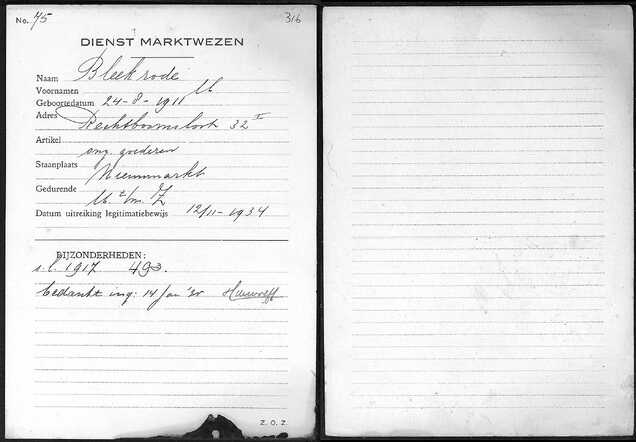 No. 75 316
DIENST MARKTWEZEN
Naam Bleekrode
Voornamen M
Geboortedatum 24-8-1911
Adres Rechtboomsloot 32 II
Artikel
ong. goederen
Staanplaats Nieuwmarkt
Gedurende M t/m Z
Datum uitreiking legitimatiebewijs 12/11-1934
BIJZONDERHEDEN:
s.l. 1917 493.
bedankt ing: 14 Jan
Z. O. Z.